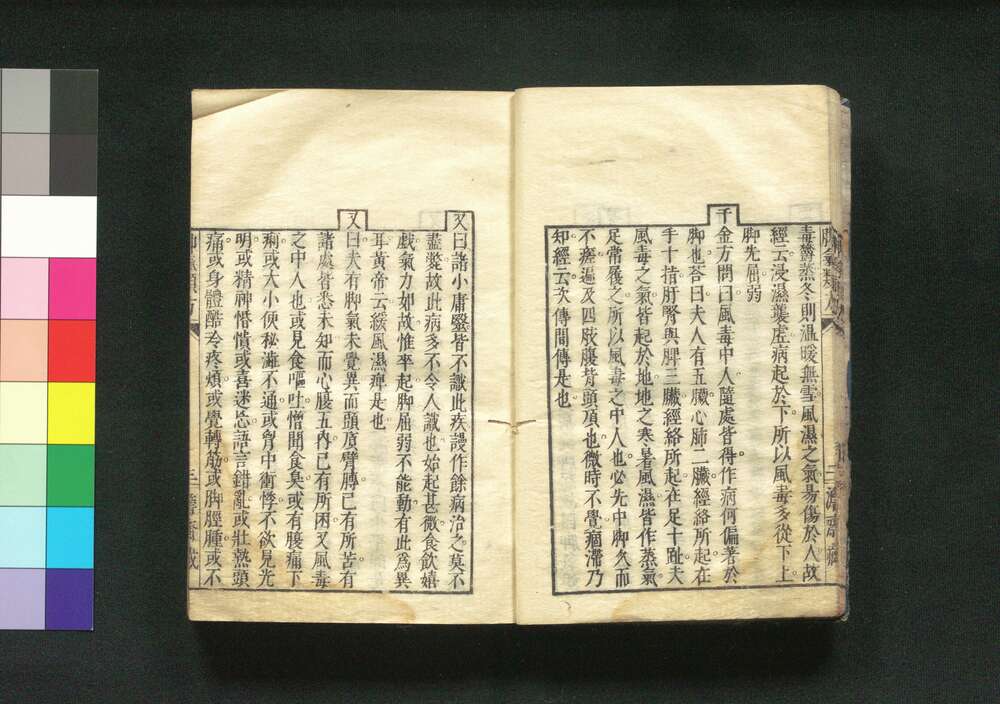 毒鬱蒸冬則温暖無雪風濕之氣易傷於人故
經云浸濕襲虚病起於下所以風毒多從下上
脚先屈弱
千金方問曰風毒中人隨處皆得作病何偏著於
脚也荅曰夫人有五臟心肺二臟經絡所起在
手十指肝腎與脾三臟經絡所起在足十趾夫
風毒之氣皆起於地地之寒暑風濕皆作蒸氣
足常履之所以風毒之中人也必先中脚久而
不瘥遍及四肢腹背頭項也微時不覺痼滯乃
知經云次傳間傳是也
又曰諸小庸醫皆不識此疾謾作餘病治之莫不
盡斃故此病多不令人識也始起甚微食飲嬉
戯氣力如故惟卒起脚屈弱不能動有此爲異
耳黄帝云緩風濕痺是也
又曰夫有脚氣未覺異而頭項臂膊已有所苦有
諸處皆悉未知而心腹五内已有所困又風毒
之中人也或見食嘔吐憎聞食臭或有腹痛下
痢或大小便秘澁不通或胷中衝悸不欲見光
明或精神惛憒或喜迷忘語言錯亂或壮熱頭
痛或身體酷冷疼煩或覺轉筋或脚脛腫或不